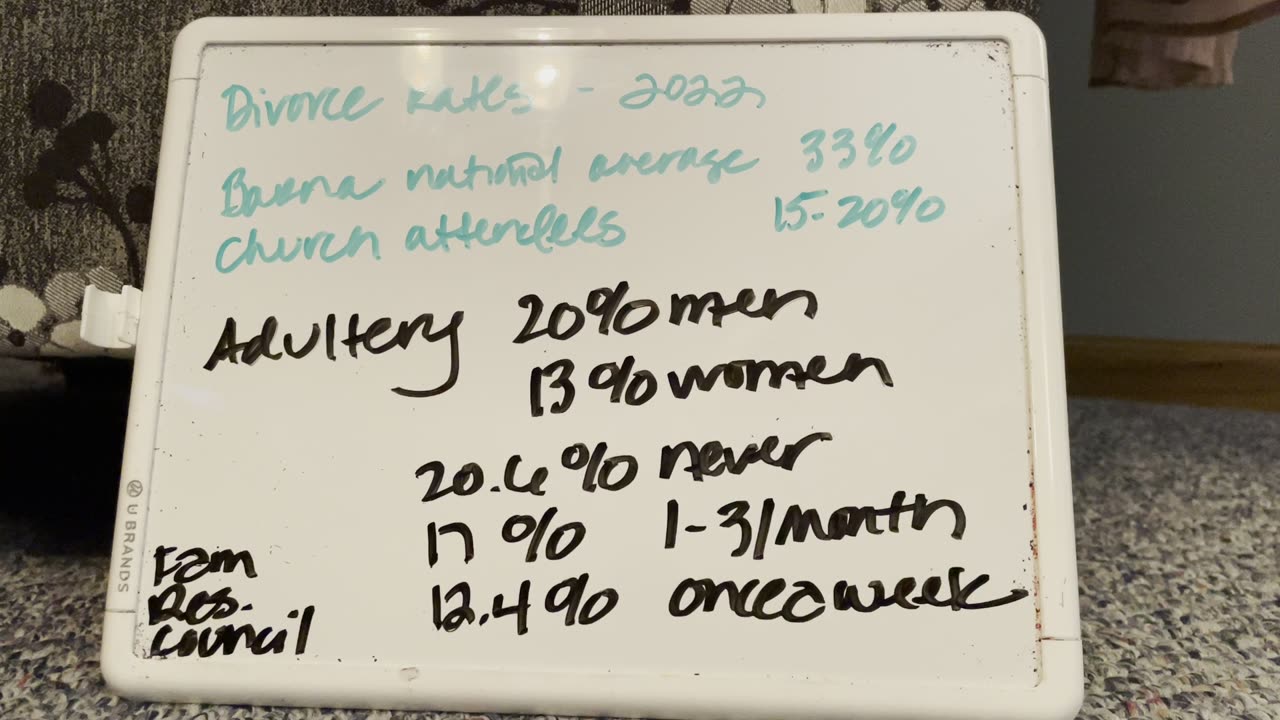 Divorce Rates - 2022
Barna national average 33%
Church attendees 15-20%
Adultery 20% men
13% women
20.6% never
17% 1-3/month
12.4% once a week
Fam
Res.
Council
U BRANDS